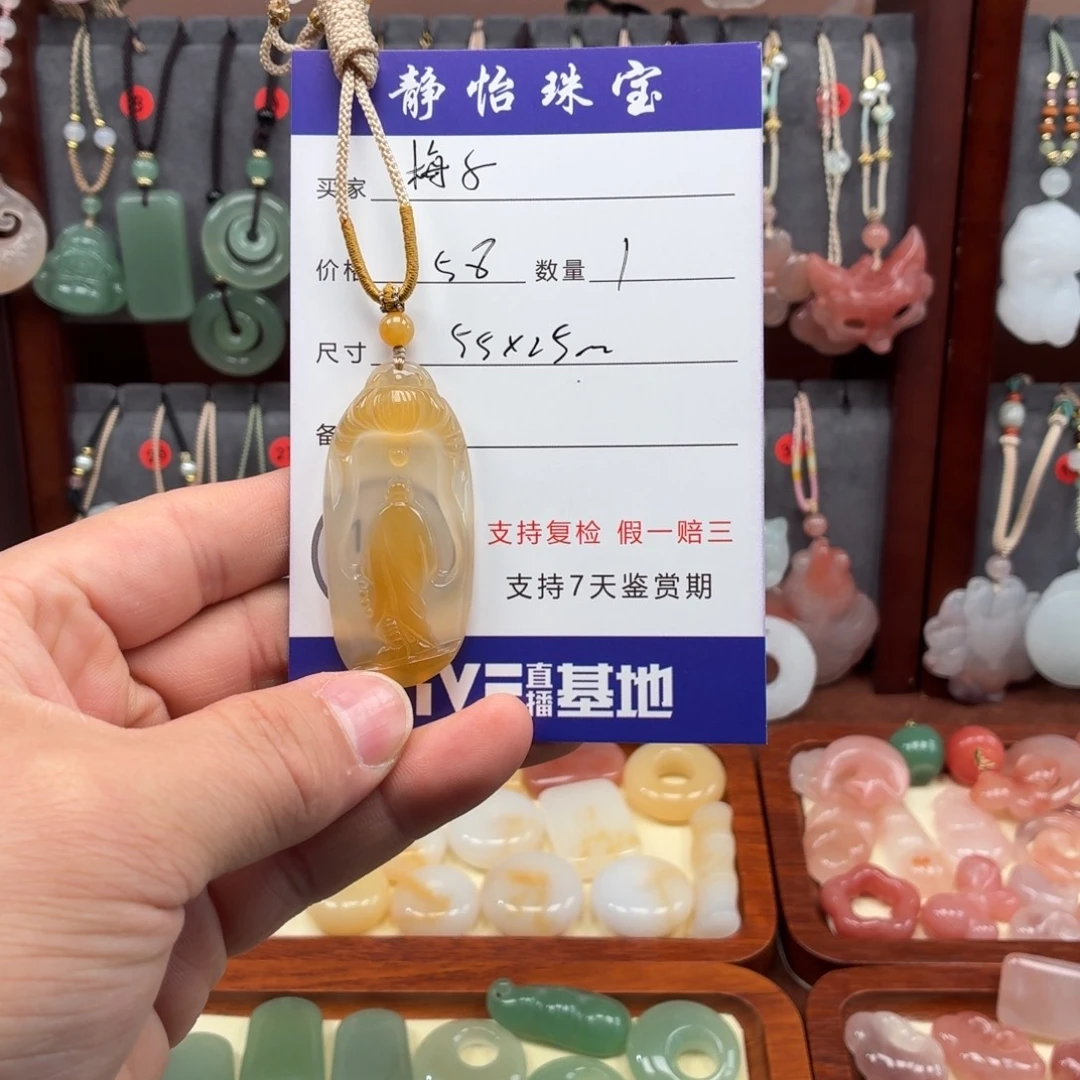 静怡珠宝
买家 梅子
价格 58 数量 1
尺寸 55×25m
备
支持复检 假一赔三
支持7天鉴赏期
直播基地